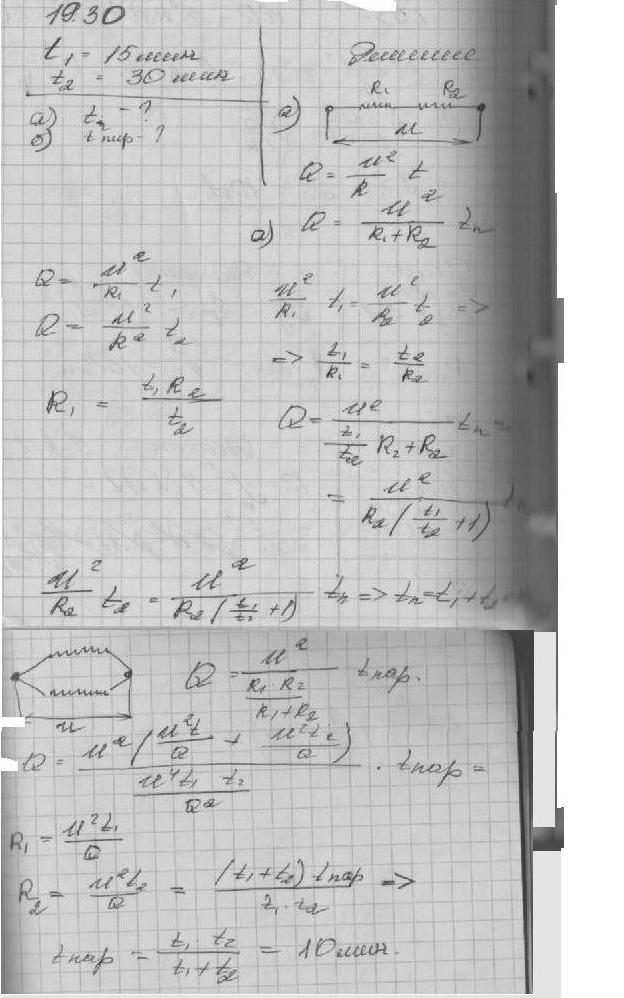 19.30
t₁ = 15 мин
t₂ = 30 мин
а) tₙ - ?
б) t пар - ?
Решение
а) R₁ R₂
u
Q = u²/R t
а) Q = u²/(R₁ + R₂) tₙ
Q = u²/R₁ t₁
Q = u²/R₂ t₂
u²/R₁ t₁ = u²/R₂ t₂ =>
=> t₁/R₁ = t₂/R₂
R₁ = t₁ R₂/t₂
Q = u²/(t₁/t₂ R₂ + R₂) tₙ =
= u²/(R₂ (t₁/t₂ + 1)) tₙ
u²/R₂ t₂ = u²/(R₂ (t₁/t₂ + 1)) tₙ => tₙ = t₁ + t₂
u
Q = u²/(R₁ · R₂/(R₁ + R₂)) t пар.
Q = u² (u²t/Q + u²t₂/Q)/(u⁴t₁ t₂/Q²) · t пар =
R₁ = u²t₁/Q
R₂ = u²t₂/Q = (t₁ + t₂) t пар/(t₁ · t₂) =>
t пар = t₁ · t₂/(t₁ + t₂) = 10 мин.